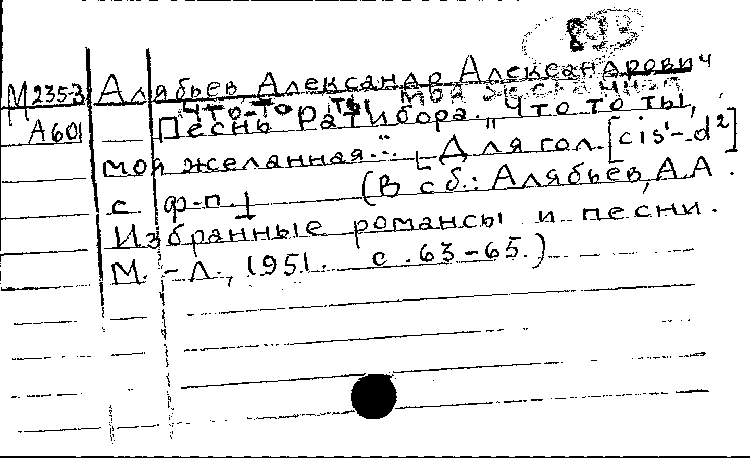 893
М 235-3 Алябьев Александр Александрович
Что-то ты моя желанная
А 601 Песнь Ратибора. "Что то ты,
моя желанная..". [Для гол. [cis'-d²]
с ф-п.] (В сб.: Алябьев, А.А.
Избранные романсы и песни.
М.-Л., 1951. с. 63-65.)